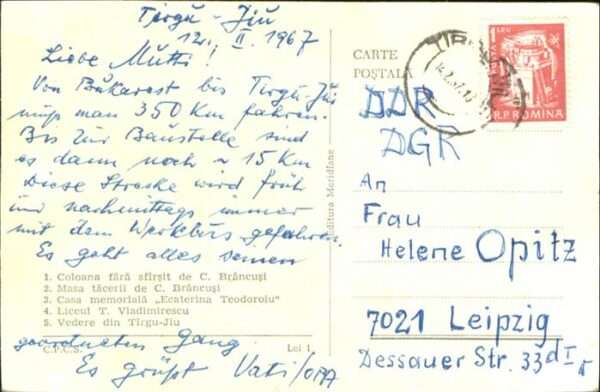 Tirgu - Jiu
12. II. 1967
Liebe Mutti!
Von Bukarest bis Tirgu-Jiu
muß man 350 Km fahren.
Bis zur Baustelle sind
es dann noch ~ 15 Km
Diese Strecke wird früh
und nachmittags immer
mit dem Werkbus gefahren.
Es geht alles seinen
1. Coloana fără sfîrşit de C. Brâncuşi
2. Masa tăcerii de C. Brâncuşi
3. Casa memorială „Ecaterina Teodoroiu"
4. Liceul T. Vladimirescu
5. Vedere din Tîrgu-Jiu
geordneten Gang.
C.P.C.S. Lei 1
Es grüßt Vati/OPA
Editura Meridiane
CARTE
POŞTALĂ
1 LEU
POSTA
R.P. ROMINA
DDR
DGR
An
Frau
Helene Opitz
7021 Leipzig
Dessauer Str. 33d I